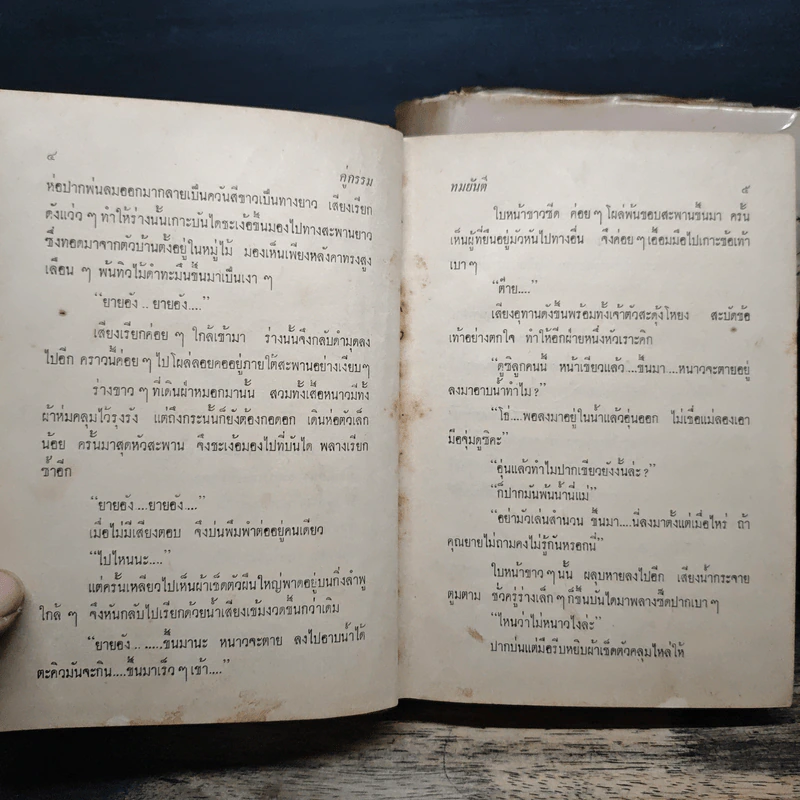 ๔
คู่กรรม
ห่อปากพ่นลมออกมากลายเป็นควันสีขาวเป็นทางยาว เสียงเรียก
ดังแว่ว ๆ ทำให้ร่างนั้นเกาะบันไดชะเง้อขึ้นมองไปทางสะพานยาว
ซึ่งทอดมาจากตัวบ้านตั้งอยู่ในหมู่ไม้ มองเห็นเพียงหลังคาทรงสูง
เลือน ๆ พ้นทิวไม้ดำทะมึนขึ้นมาเป็นเงา ๆ
“ยายอัง .. ยายอัง....”
เสียงเรียกค่อย ๆ ใกล้เข้ามา ร่างนั้นจึงกลับดำมุดลง
ไปอีก คราวนี้ค่อย ๆ ไปโผล่ลอยคออยู่ภายใต้สะพานอย่างเงียบๆ
ร่างขาว ๆ ที่เดินฝ่าหมอกมานั้น สวมทั้งเสื้อหนาวมีทั้ง
ผ้าห่มคลุมไว้รุงรัง แต่ถึงกระนั้นก็ยังต้องกอดอก เดินห่อตัวเล็ก
น้อย ครั้นมาสุดหัวสะพาน จึงชะเง้อมองไปที่บันได พลางเรียก
ซ้ำอีก
“ยายอัง ....ยายอัง....”
เมื่อไม่มีเสียงตอบ จึงบ่นพึมพำต่ออยู่คนเดียว
“ไปไหนนะ....”
แต่ครั้นเหลียวไปเห็นผ้าเช็ดตัวผืนใหญ่พาดอยู่บนกิ่งลำพู
ใกล้ ๆ จึงหันกลับไปเรียกด้วยน้ำเสียงเข้มงวดขึ้นกว่าเดิม
“ยายอัง .. .....ขึ้นมานะ หนาวจะตาย ลงไปอาบน้ำได้
ตะคิวมันจะกิน....ขึ้นมาเร็ว ๆ เข้า....”
ทมยันตี
๕
ใบหน้าขาวซีด ค่อย ๆ โผล่พ้นขอบสะพานขึ้นมา ครั้น
เห็นผู้ที่ยืนอยู่มัวหันไปทางอื่น จึงค่อย ๆ เอื้อมมือไปเกาะข้อเท้า
เบา ๆ
“ต๊าย....”
เสียงอุทานดังขึ้นพร้อมทั้งเจ้าตัวสะดุ้งโหยง สะบัดข้อ
เท้าอย่างตกใจ ทำให้อีกฝ่ายหนึ่งหัวเราะคิก
“ดูซิลูกคนนี้ หน้าเขียวแล้ว ...ขึ้นมา....หนาวจะตายอยู่
ลงมาอาบน้ำทำไม?”
“โธ่....พอลงมาอยู่ในน้ำแล้วอุ่นออก ไม่เชื่อแม่ลองเอา
มือจุ่มดูซิคะ”
“อุ่นแล้วทำไมปากเขียวยังงั้นล่ะ?”
“ก็ปากมันพ้นน้ำนี่แม่”
“อย่ามัวเล่นสำนวน ขึ้นมา....นี่ลงมาตั้งแต่เมื่อไหร่ ถ้า
คุณยายไม่ถามคงไม่รู้กันหรอกนี่”
ใบหน้าขาว ๆ นั้น ผลุบหายลงไปอีก เสียงน้ำกระจาย
ตูมตาม ชั่วครู่ร่างเล็ก ๆ ก็ขึ้นบันไดมาพลางซี้ดปากเบา ๆ
“ไหนว่าไม่หนาวไงล่ะ”
ปากบ่นแต่มือรีบหยิบผ้าเช็ดตัวคลุมไหล่ให้